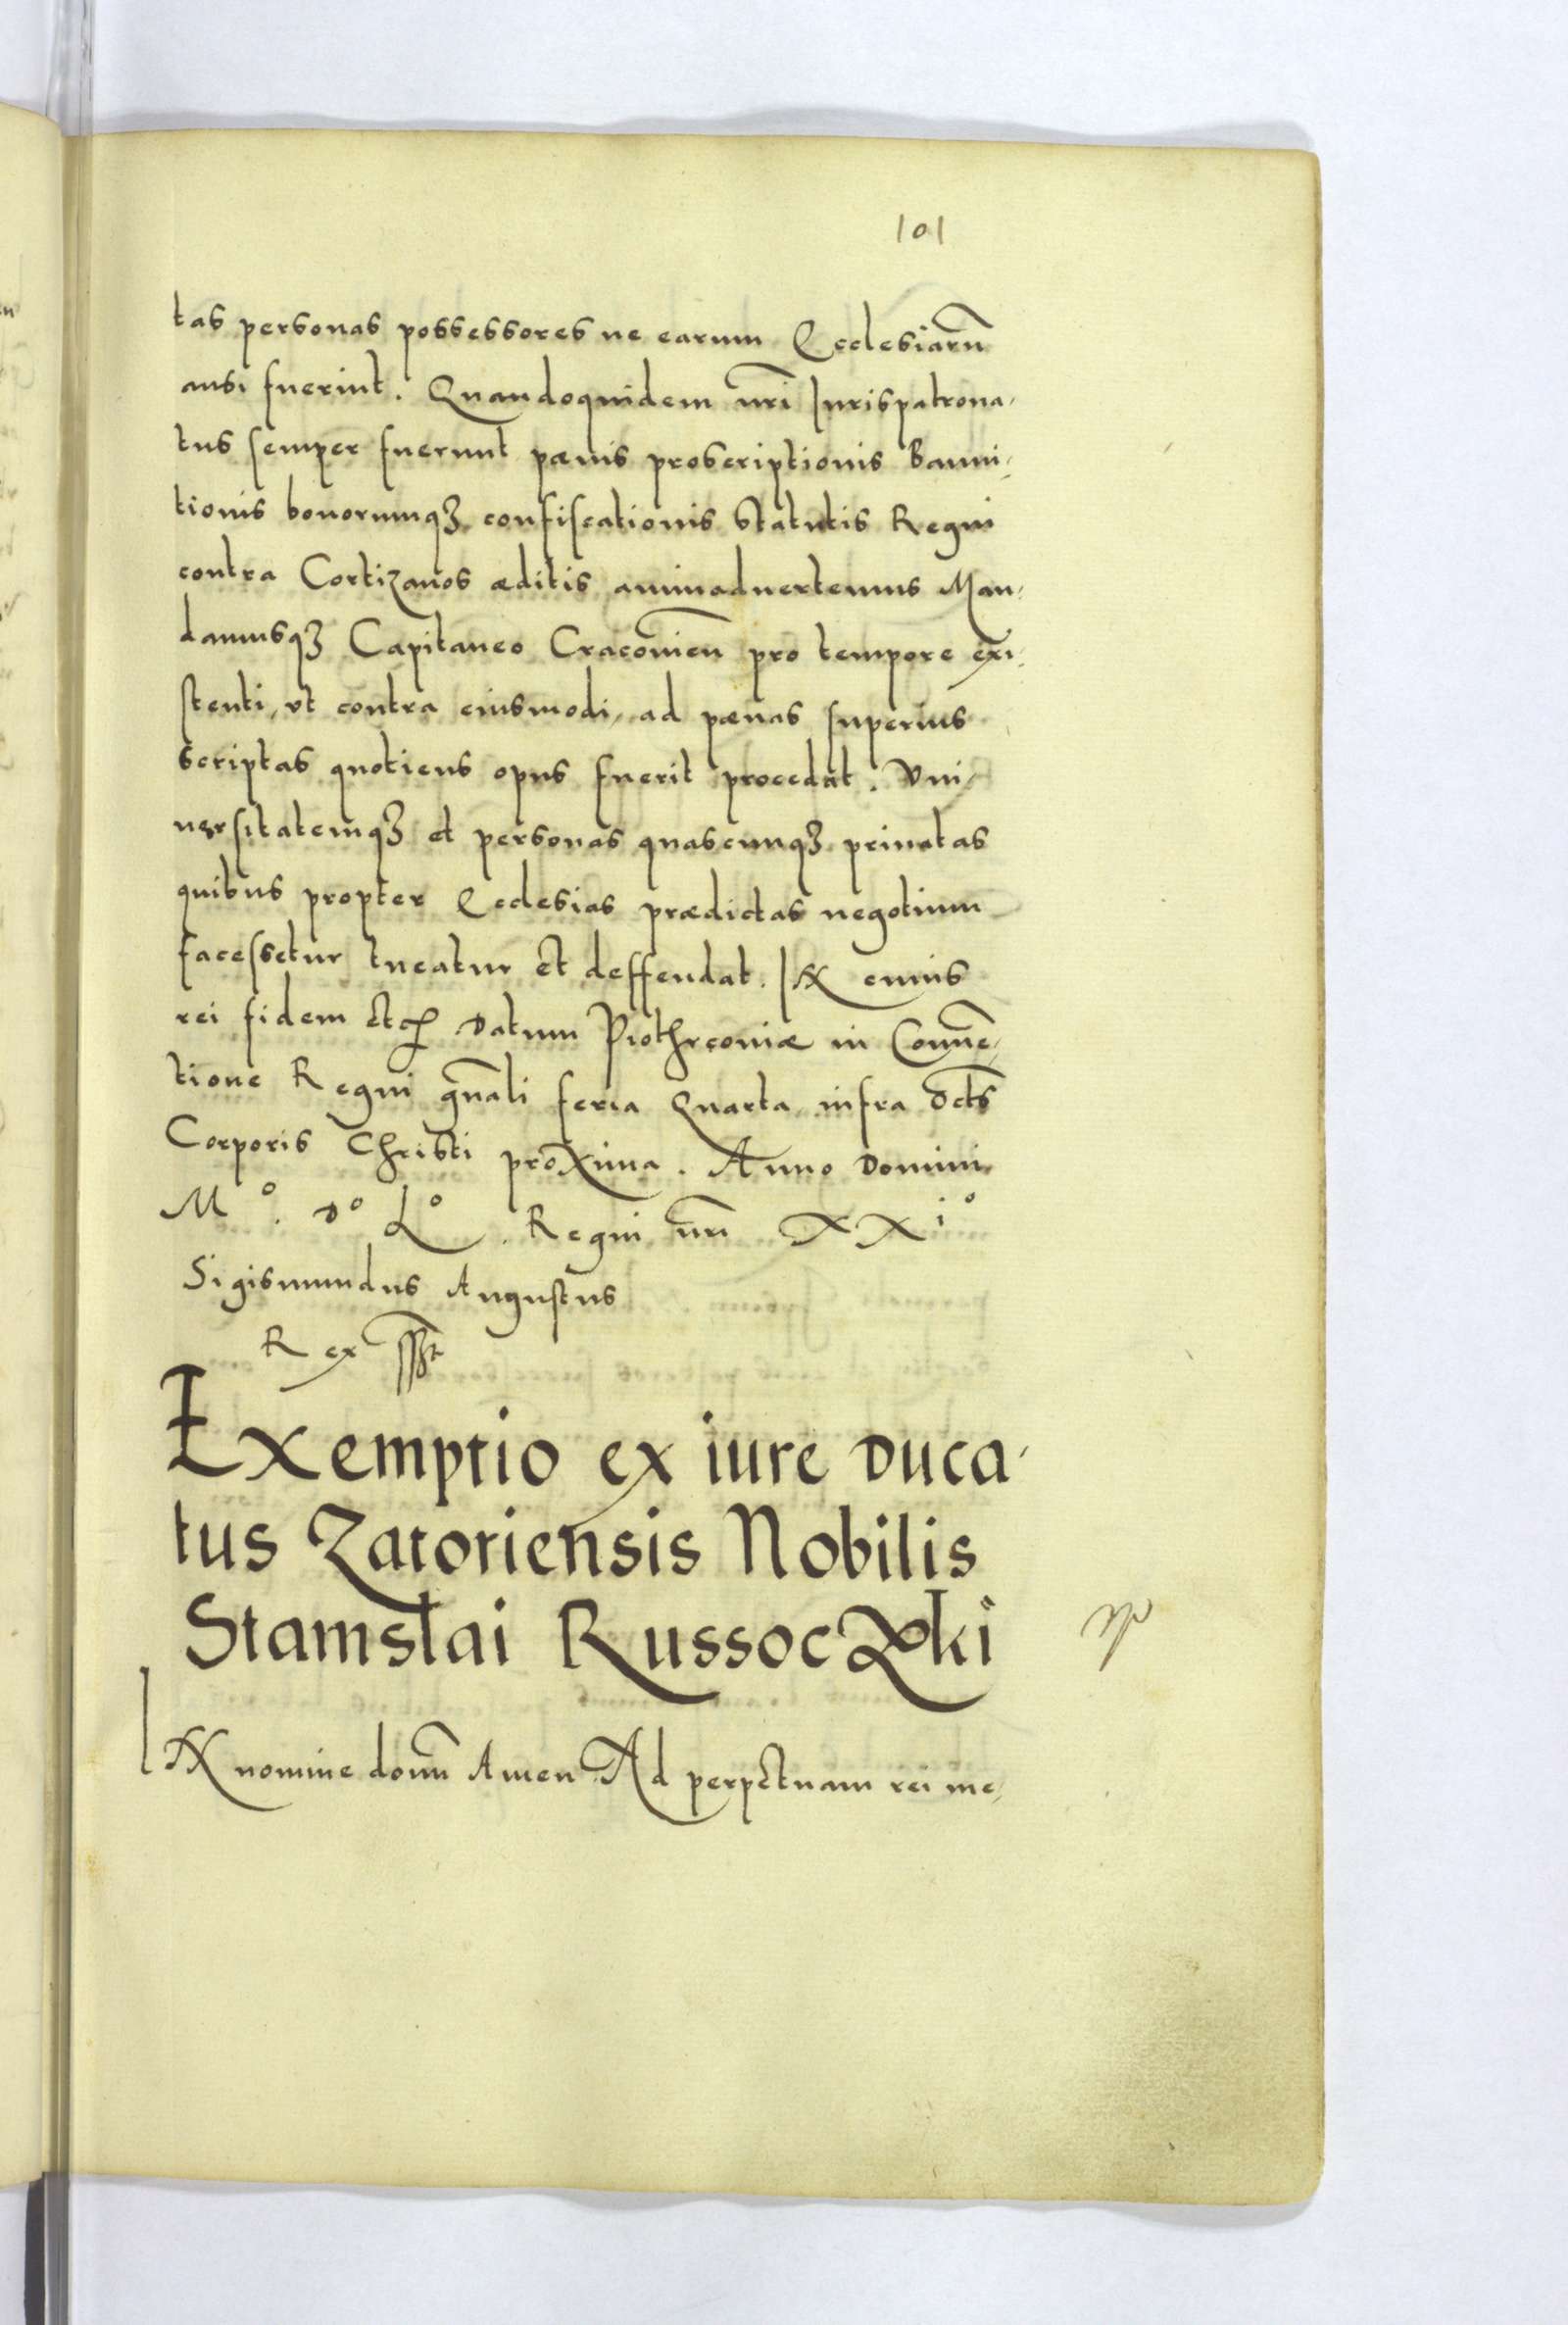 101
tas personas possessores ne earum Ecclesiarũ
ausi fuerint. Quandoquidem nr̃i Iurispatrona-
tus semper fuerunt pœnis proscriptionis Banni-
tionis bonorumqꝫ confiscationis Statutis Regni
contra Cortizanos æditis animaduertemus Man-
damusqꝫ Capitaneo Cracovień pro tempore exi-
stenti, vt contra eiusmodi, ad pœnas superius
scriptas quotiens opus fuerit procedat. Vni-
uersitatemqꝫ et personas quascunqꝫ priuatas
quibus propter Ecclesias prædictas negotium
facessetur tueatur et deffendat. In cuius
rei fidem etc̃ Datum Piothrcoviæ in Conuẽ-
tione Regni gñali feria Quarta infra Octs̃
Corporis Christi proxima. Anno Domini
M° D° L°. Regni nr̃i XXi°
Sigismundus Augustus
Rex sszt
Exemptio ex iure Duca-
tus Zatoriensis Nobilis
Stanislai Russoczski
In nomine domĩ Amen Ad perpetuam rei me-